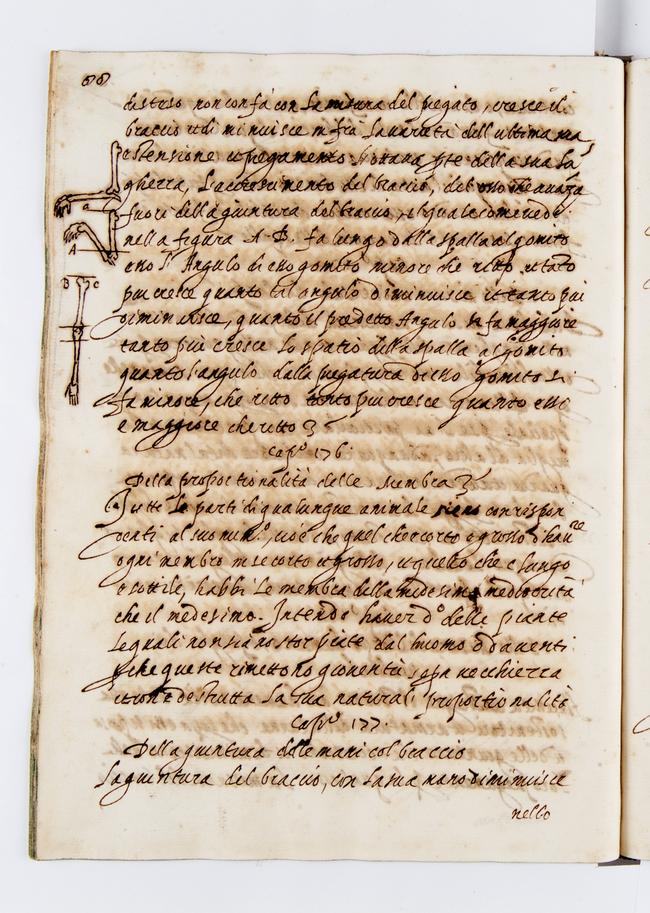 66
disteso non confà con la misura del piegato, cresce il
braccio et diminuisce infra la varietà dell ultima sua
estensione et piegamento l ottava pte della sua lū
ghezza, L'accrescimento del braccio, del osso che avanza
fuori della giuntura del braccio, il quale come vedi
nella figura A. B. fa lungo dalla spalla al gomito
esso Angulo di esso gomito minore che retto, et tāto
piu cresce quanto tal angulo diminuisce, et tanto piu
diminuisce, quanto il predetto Angulo si fa maggiore
tanto più cresce lo spatio della spalla al Gomito
quanto l'angulo della piegatura di esso gomito si
fa minore, che retto tanto piu cresce quanto essi
e maggiore che retto
Capº 176.
Della proportionalità delle Membra
Tutte le parti di qualunque animale sieno conrispon
denti al suo , cioè che quel che è corto e grosso d haver
ogni membro in se corto et grosso, et quello che e lungo
e sottile, habbi le membra della medesima mediocrità
che il medesimo. Intendo haver dº delle piante
le quali non siano storpiate dal huomo ò da venti
pche queste rimettono gioventù sopa vecchiezza
et così è destrutta la sua naturali proportionalità
Capº 177.
Della giuntura delle mani col braccio
La giuntura del braccio, con la sua mano diminuisce
nello
A
a
B
c